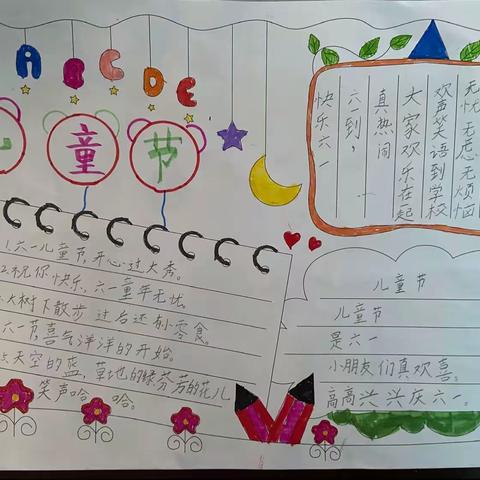 A B C D E
儿童节
1.六一儿童节,开心过大秀。
2.祝你快乐,六一童年无忧。
大树下散步 过后还有小零食。
六一节,喜气洋洋的开始。
天空的蓝,草地的绿芬芳的花儿
笑声哈 哈。
快乐六一
六一到,
真热闹
大家欢乐在一起
欢声笑语到学校
无忧无虑无烦恼
儿童节
儿童节
是六一
小朋友们真欢喜。
高高兴兴庆六一。